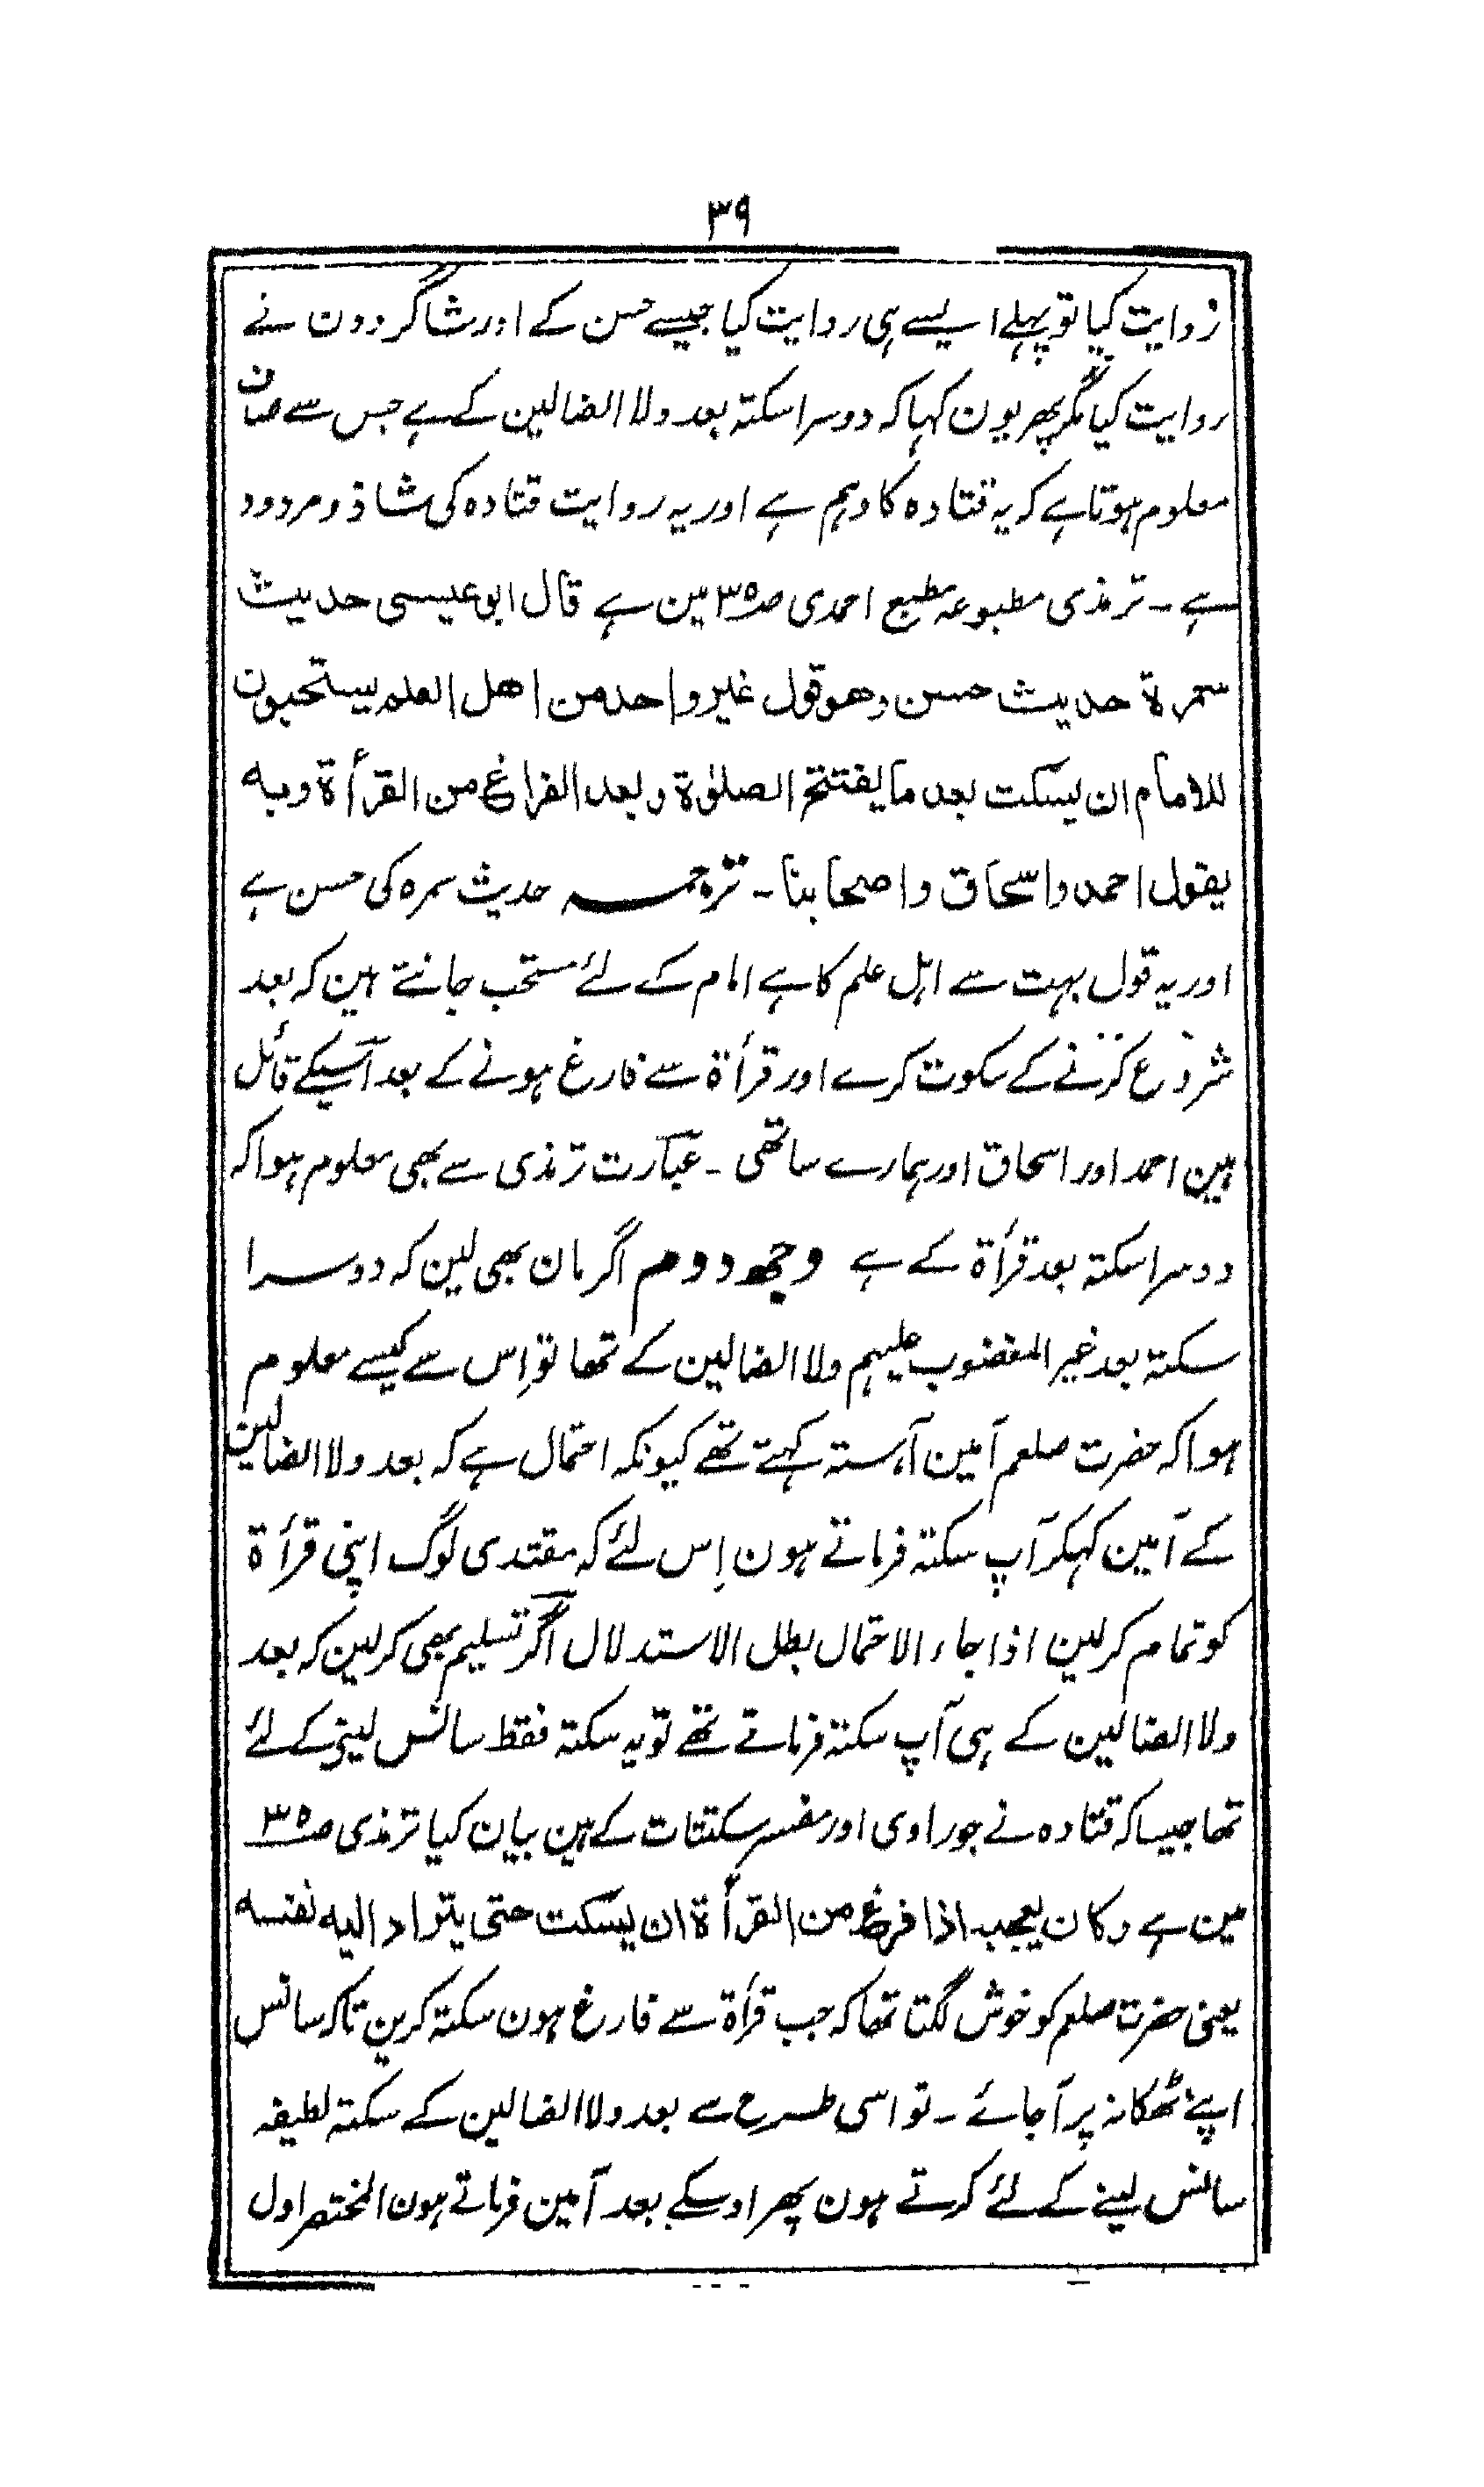 ۳۹
روایت کیا تو پہلے ایسے ہی روایت کیا جیسے حسن کے اور شاگردون نے
روایت کیا مگر پھر یون کہا کہ دوسرا سکتہ بعد ولا الضالین کے ہے جس سے صاف
معلوم ہوتا ہے کہ یہ قتادہ کا وہم ہے اور یہ روایت قتادہ کی شاذ و مردود
ہے ۔ ترمذی مطبوعہ مطبع احمدی صـ۳۵ مین ہے قال ابو عیسی حدیث
سمرة حدیث حسن وهو قول غیر واحد من اهل العلم یستحبون
للامام ان یسکت بعد ما یفتتح الصلوٰة وبعد الفراغ من القرأة وبه
یقول احمد واسحاق واصحابنا ۔ ترجمہ حدیث سمرہ کی حسن ہے
اور یہ قول بہت سے اہل علم کا ہے امام کے لئے مستحب جانتے ہین کہ بعد
شروع کرنے کے سکوت کرے اور قرأة سے فارغ ہونے کے بعد اسیکے قائل
ہین احمد اور اسحاق اور ہمارے ساتھی ۔ عبارت ترمذی سے بھی معلوم ہوا کہ
دوسرا سکتہ بعد قرأة کے ہے وجہ دوم اگر مان بھی لین کہ دوسرا
سکتہ بعد غیر المغضوب علیہم ولا الضالین کے تھا تو اِس سے کیسے معلوم
ہوا کہ حضرت صلعم آمین آہستہ کہتے تھے کیونکہ احتمال ہے کہ بعد ولا الضالین
کے آمین کہکر آپ سکتہ فرماتے ہون اِس لئے کہ مقتدی لوگ اپنی قرأة
کو تمام کرلین اذا جاء الاحتمال بطل الاستدلال اگر تسلیم بھی کرلین کہ بعد
ولا الضالین کے ہی آپ سکتہ فرماتے تھے تو یہ سکتہ فقط سانس لینے کے لئے
تھا جیسا کہ قتادہ نے جو راوی اور مفسر سکتتات کے ہین بیان کیا ترمذی صـ۳۵
مین ہے وکان یعجبه اذا فرغ من القرأة ان یسکت حتی یتراد الیه نفسه
یعنی حضرت صلعم کو خوش لگتا تھا کہ جب قرأة سے فارغ ہون سکتہ کرین تاکہ سانس
اپنے ٹھکانہ پر آجائے ۔ تو اسی طرح سے بعد ولا الضالین کے سکتہ لطیفہ
سانس لینے کے لئے کرتے ہون پھر اوسکے بعد آمین فرماتے ہون المختصر اول